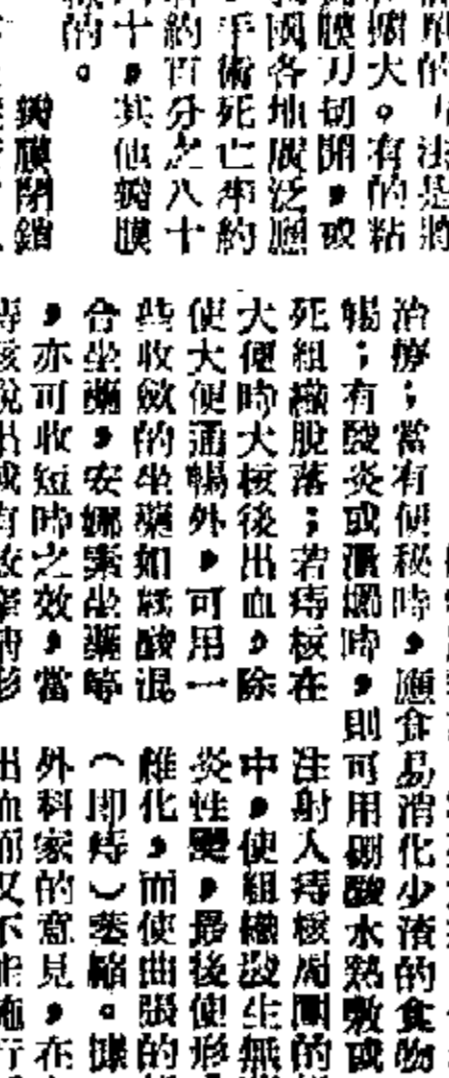 的「法是將
擴大。有的粘
膜刀切開,或
國各地廣泛應
手術死亡率約
約百分之八十
十,其他瓣膜
的。
瓣膜閉鎖
治療;當有便秘時,應食易消化少渣的食物
暢;有發炎或潰爛時,則可用硼酸水熱敷或
死組織脫落;若痔核在
大便時大核後,出血,除
使大便通暢外,可用一
些收斂的坐藥如鞣酸混
合坐藥,安娜素坐藥等
,亦可收短時之效,當
注射入痔核周圍的
中,使組織發生無
炎性變,最後使形
維化,而使曲張的
(即痔)萎縮。據
外科家的意見,在
出血而又不能施行